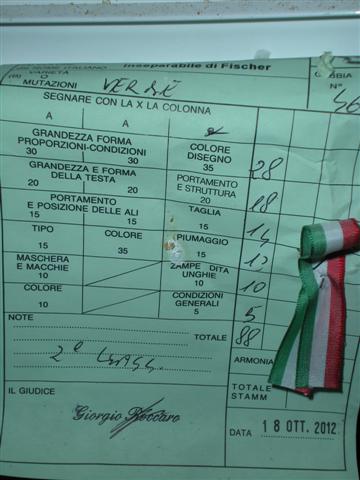 (IN) NOME ITALIANO Inseparabile di Fischer
VARIETÀ
O
MUTAZIONI VERDE
GABBIA
N° 46
SEGNARE CON LA X LA COLONNA
A A
GRANDEZZA FORMA PROPORZIONI-CONDIZIONI 30 30 COLORE DISEGNO 35 28
GRANDEZZA E FORMA DELLA TESTA 20 20 PORTAMENTO E STRUTTURA 20 18
PORTAMENTO E POSIZIONE DELLE ALI 15 15 TAGLIA 15 14
TIPO 15 COLORE 35 PIUMAGGIO 15 13
MASCHERA E MACCHIE 10 ZAMPE DITA UNGHIE 10 10
COLORE 10 CONDIZIONI GENERALI 5 5
NOTE
TOTALE 88
2° CLASS.
ARMONIA
TOTALE
STAMM
IL GIUDICE
Giorgio
DATA 18 OTT. 2012